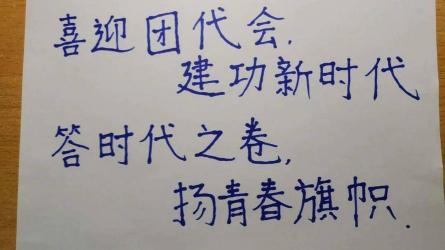 喜迎团代会,
建功新时代
答时代之卷,
扬青春旗帜.